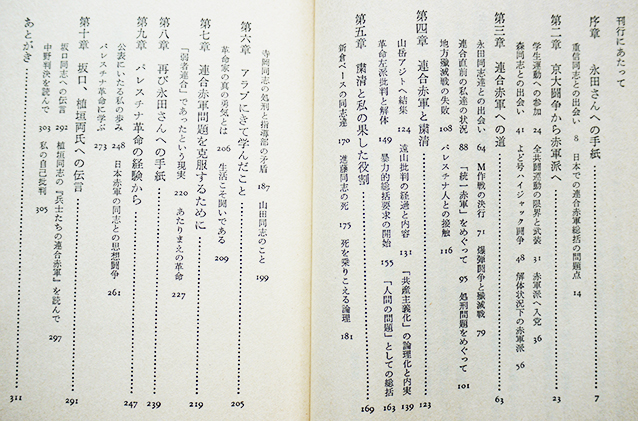 刊行にあたって
序章 永田さんへの手紙 7
重信同志との出会い 8 日本での連合赤軍総括の問題点 14
第二章 京大闘争から赤軍派へ 23
学生運動への参加 24 全共闘運動の限界と武装 31 赤軍派へ入党 36
森同志との出会い 41 よど号ハイジャック闘争 48 解体状況下の赤軍派 56
第三章 連合赤軍への道 63
永田同志達との出会い 64 M作戦の決行 71 爆弾闘争と殲滅戦 79
連合直前の私達の状況 88 「統一赤軍」をめぐって 95 処刑問題をめぐって 101
地方殲滅戦の失敗 108 パレスチナ人との接触 116
第四章 連合赤軍と粛清 123
山岳アジトへ結集 124 遠山批判の経過と内容 131 「共産主義化」の論理化と内実 139
革命左派批判と解体 149 暴力的総括要求の開始 155 「人間の問題」としての総括 163
第五章 粛清と私の果した役割 169
新倉ベースの同志達 170 進藤同志の死 175 死を乗りこえる論理 181
寺岡同志の処刑と指導部の矛盾 187 山田同志のこと 199
第六章 アラブにきて学んだこと 205
革命家の真の勇気とは 206 生活こそ闘いである 209
第七章 連合赤軍問題を克服するために 219
「弱者連合」であったという現実 220 あたりまえの革命 227
第八章 再び永田さんへの手紙 239
第九章 パレスチナ革命の経験から 247
公表にいたる私の歩み 248 日本赤軍の同志との思想闘争 261
パレスチナ革命に学ぶ 273
第十章 坂口、植垣両氏への伝言 291
坂口同志への伝言 292 植垣同志の『兵士たちの連合赤軍』を読んで 297
中野判決を読んで 303 私の自己批判 305
あとがき 311